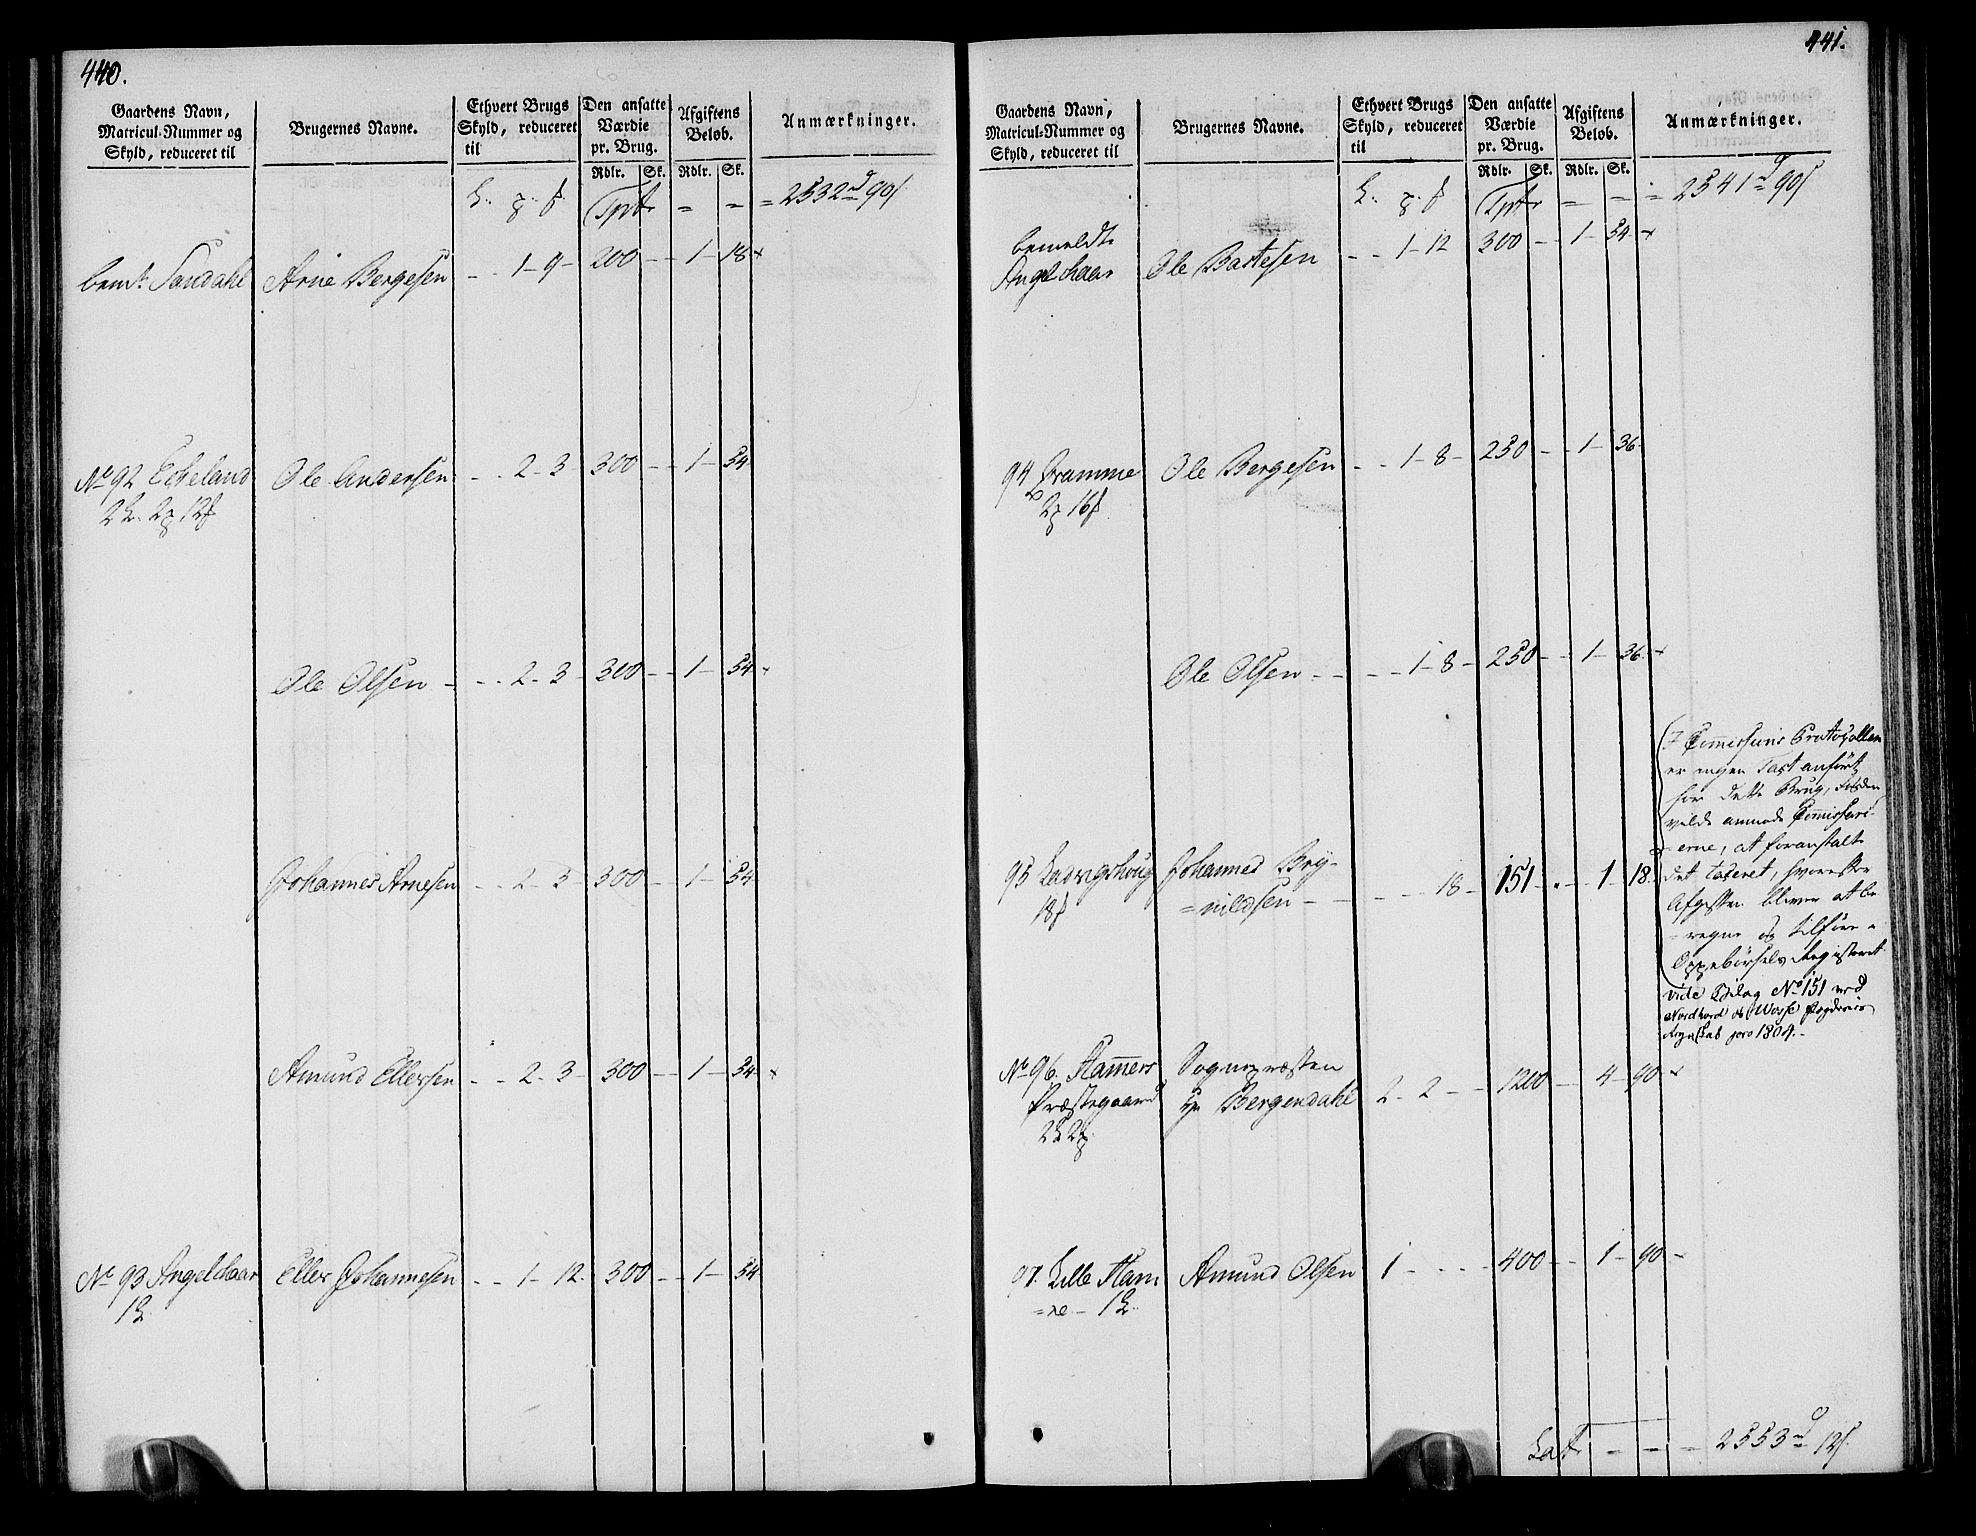 440.
Gaardens Navn,
Matricul-Nummer og
Skyld, reduceret til
Brugernes Navne.
Ethvert Brugs
Skyld, reduceret
til
Den ansatte
Værdie
pr. Brug.
Rdlr. Sk.
Afgiftens
Beløb.
Rdlr. Sk.
Anmærkninger.
Tpt = = = 2532 90
bem. Sandahl Arne Bergesen - - 1 - 9 - 200 - - 1 - 18
No 92 Echeland Ole Andersen - - 2 - 3 300 - - 1 - 54
2 2 12
Ole Olsen - - - 2 - 3 - 300 - - 1 - 54
Johannes Arnesen - - 2 - 3 - 300 - - 1 - 54
Amund Ellersen - - 2 - 3 - 300 - - 1 - 54
No 93 Angelskaar Eller Johannesen - - 1 - 12 - 300 - - 1 - 54
1
441.
Gaardens Navn,
Matricul-Nummer og
Skyld, reduceret til
Brugernes Navne.
Ethvert Brugs
Skyld, reduceret
til
Den ansatte
Værdie
pr. Brug.
Rdlr. Sk.
Afgiftens
Beløb.
Rdlr. Sk.
Anmærkninger.
Tpt = = = 2541 90
bemeldte
Angelskaar Ole Baste​sen - - 1 - 12 300 - - 1 - 54
94 Bramme Ole Bergesen - - 1 - 8 - 250 - - 1 - 36
2 16
Ole Olsen - - - - 1 - 8 - 250 - - 1 - 36
I Commissions Protocollen
er ingen Taxt anført
for dette Brug,
vilde anmode Commissari-
erne, at foranstalte
det taxeret, hvorefter
Afgiften bliver at be
=regne og tilføre
Oppebørsels Registeret
vide Bilag No 151 ved
Nordhord og Vosse Fogderies
Regnskab pro 1804.-
95 Ladvigshoug Johannes Bry-
18 =nildsen - - - - 18 - 151 - - 1 - 18
No 96. Hammers Sognepræsten
Præstegaard Hr Bergendahl 2 - 2 - - 1200 - - 4 - 90
2 2
97. Lille Ham Amund Olsen 1 - - - 400 - - 1 - 90
=re - 1
Lat = = = 2553 12